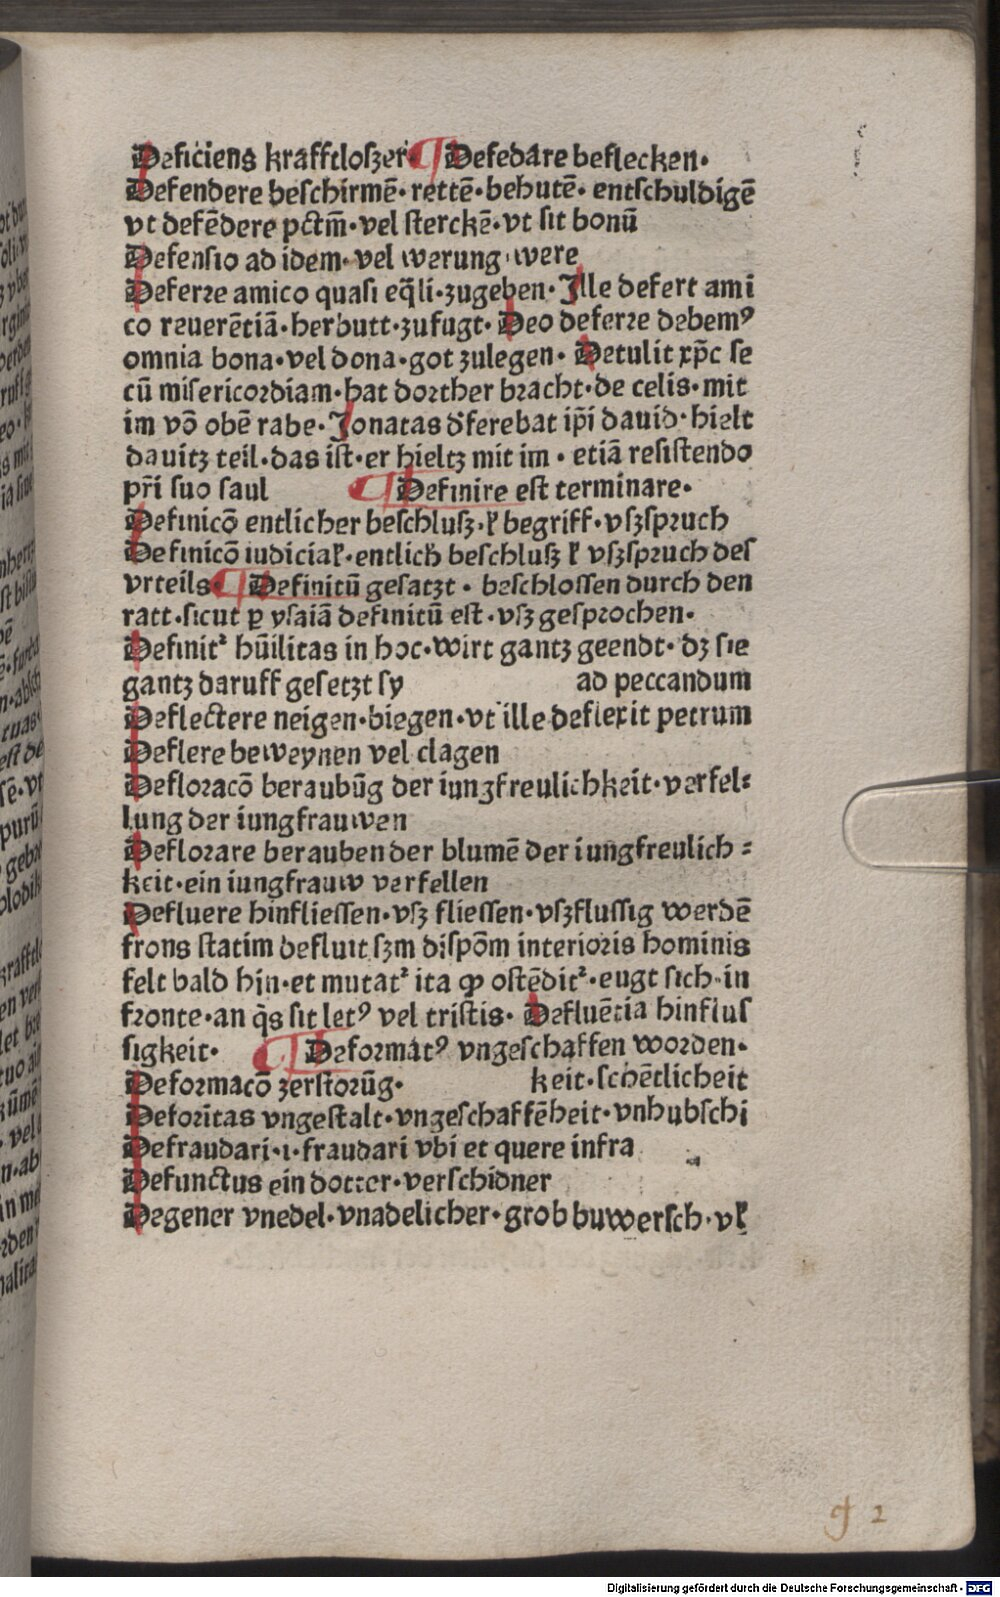 Deficiens krafftloſzer· ¶ Defedare beflecken·
Defendere beſchirmē· rettē· behutē· entſchuldigē
vt defēdere pctm̄· vel ſterckē· vt ſit bonū
Defenſio ad idem· vel werung· were
Deferre amico quaſi eq̄li· zugeben· Ille defert ami
co reuerētiā· herbutt· zufugt· Deo deferre debemꝰ
omnia bona· vel dona· got zulegen· Detulit xp̄c ſe
cū miſericordiam· hat dorther bracht· de celis· mit
im vō obē rabe· Jonatas d̓ferebat ip̄i dauid· hielt
dauitz teil· das iſt· er hieltz mit im· etiā reſiſtendo
pr̄i ſuo ſaul ¶ Definire eſt terminare·
Definicō entlicher beſchluſz· ł begriff· vſzſpruch
Definicō iudiciał· entlich beſchluſz ł vſzſpruch des
vrteils· ¶ Definitū geſatzt· beſchloſſen durch den
ratt· ſicut ꝑ yſaiā definitū eſt· vſz geſprochen·
Definitᷣ hūilitas in hoc· wirt gantz geendt· dz ſie
gantz daruff geſetzt ſy ad peccandum
Deflectere neigen· biegen· vt ille deflexit petrum
Deflere beweynen vel clagen
Defloracō beraubūg der iungfreulichkeit· verfel⸗
lung der iungfrauwen
Deflorare berauben der blumē der iungfreulich⸗
keit· ein iungfrauw verfellen
Defluere hinflieſſen· vſz flieſſen· vſzfluſſig werdē
frons ſtatim defluit ſzm diſpōm interioris hominis
felt bald hin· et mutatᷣ ita ꝙ oſtēditᷣ· eugt ſich in
fronte· an q̄s ſit letꝰ vel triſtis· Defluētia hinfluſ
ſigkeit· ¶ Deformatꝰ vngeſchaffen worden·
Deformacō zerſtorūg· keit· ſchētlicheit
Deforītas vngeſtalt· vngeſchaffēheit· vnhubſchi
Defraudari· i· fraudari vbi et quere infra
Defunctus ein dotter· verſchidner
Degener vnedel· vnadelicher· grob buwerſch· vł
g 2
Digitalisierung gefördert durch die Deutsche Forschungsgemeinschaft - DFG